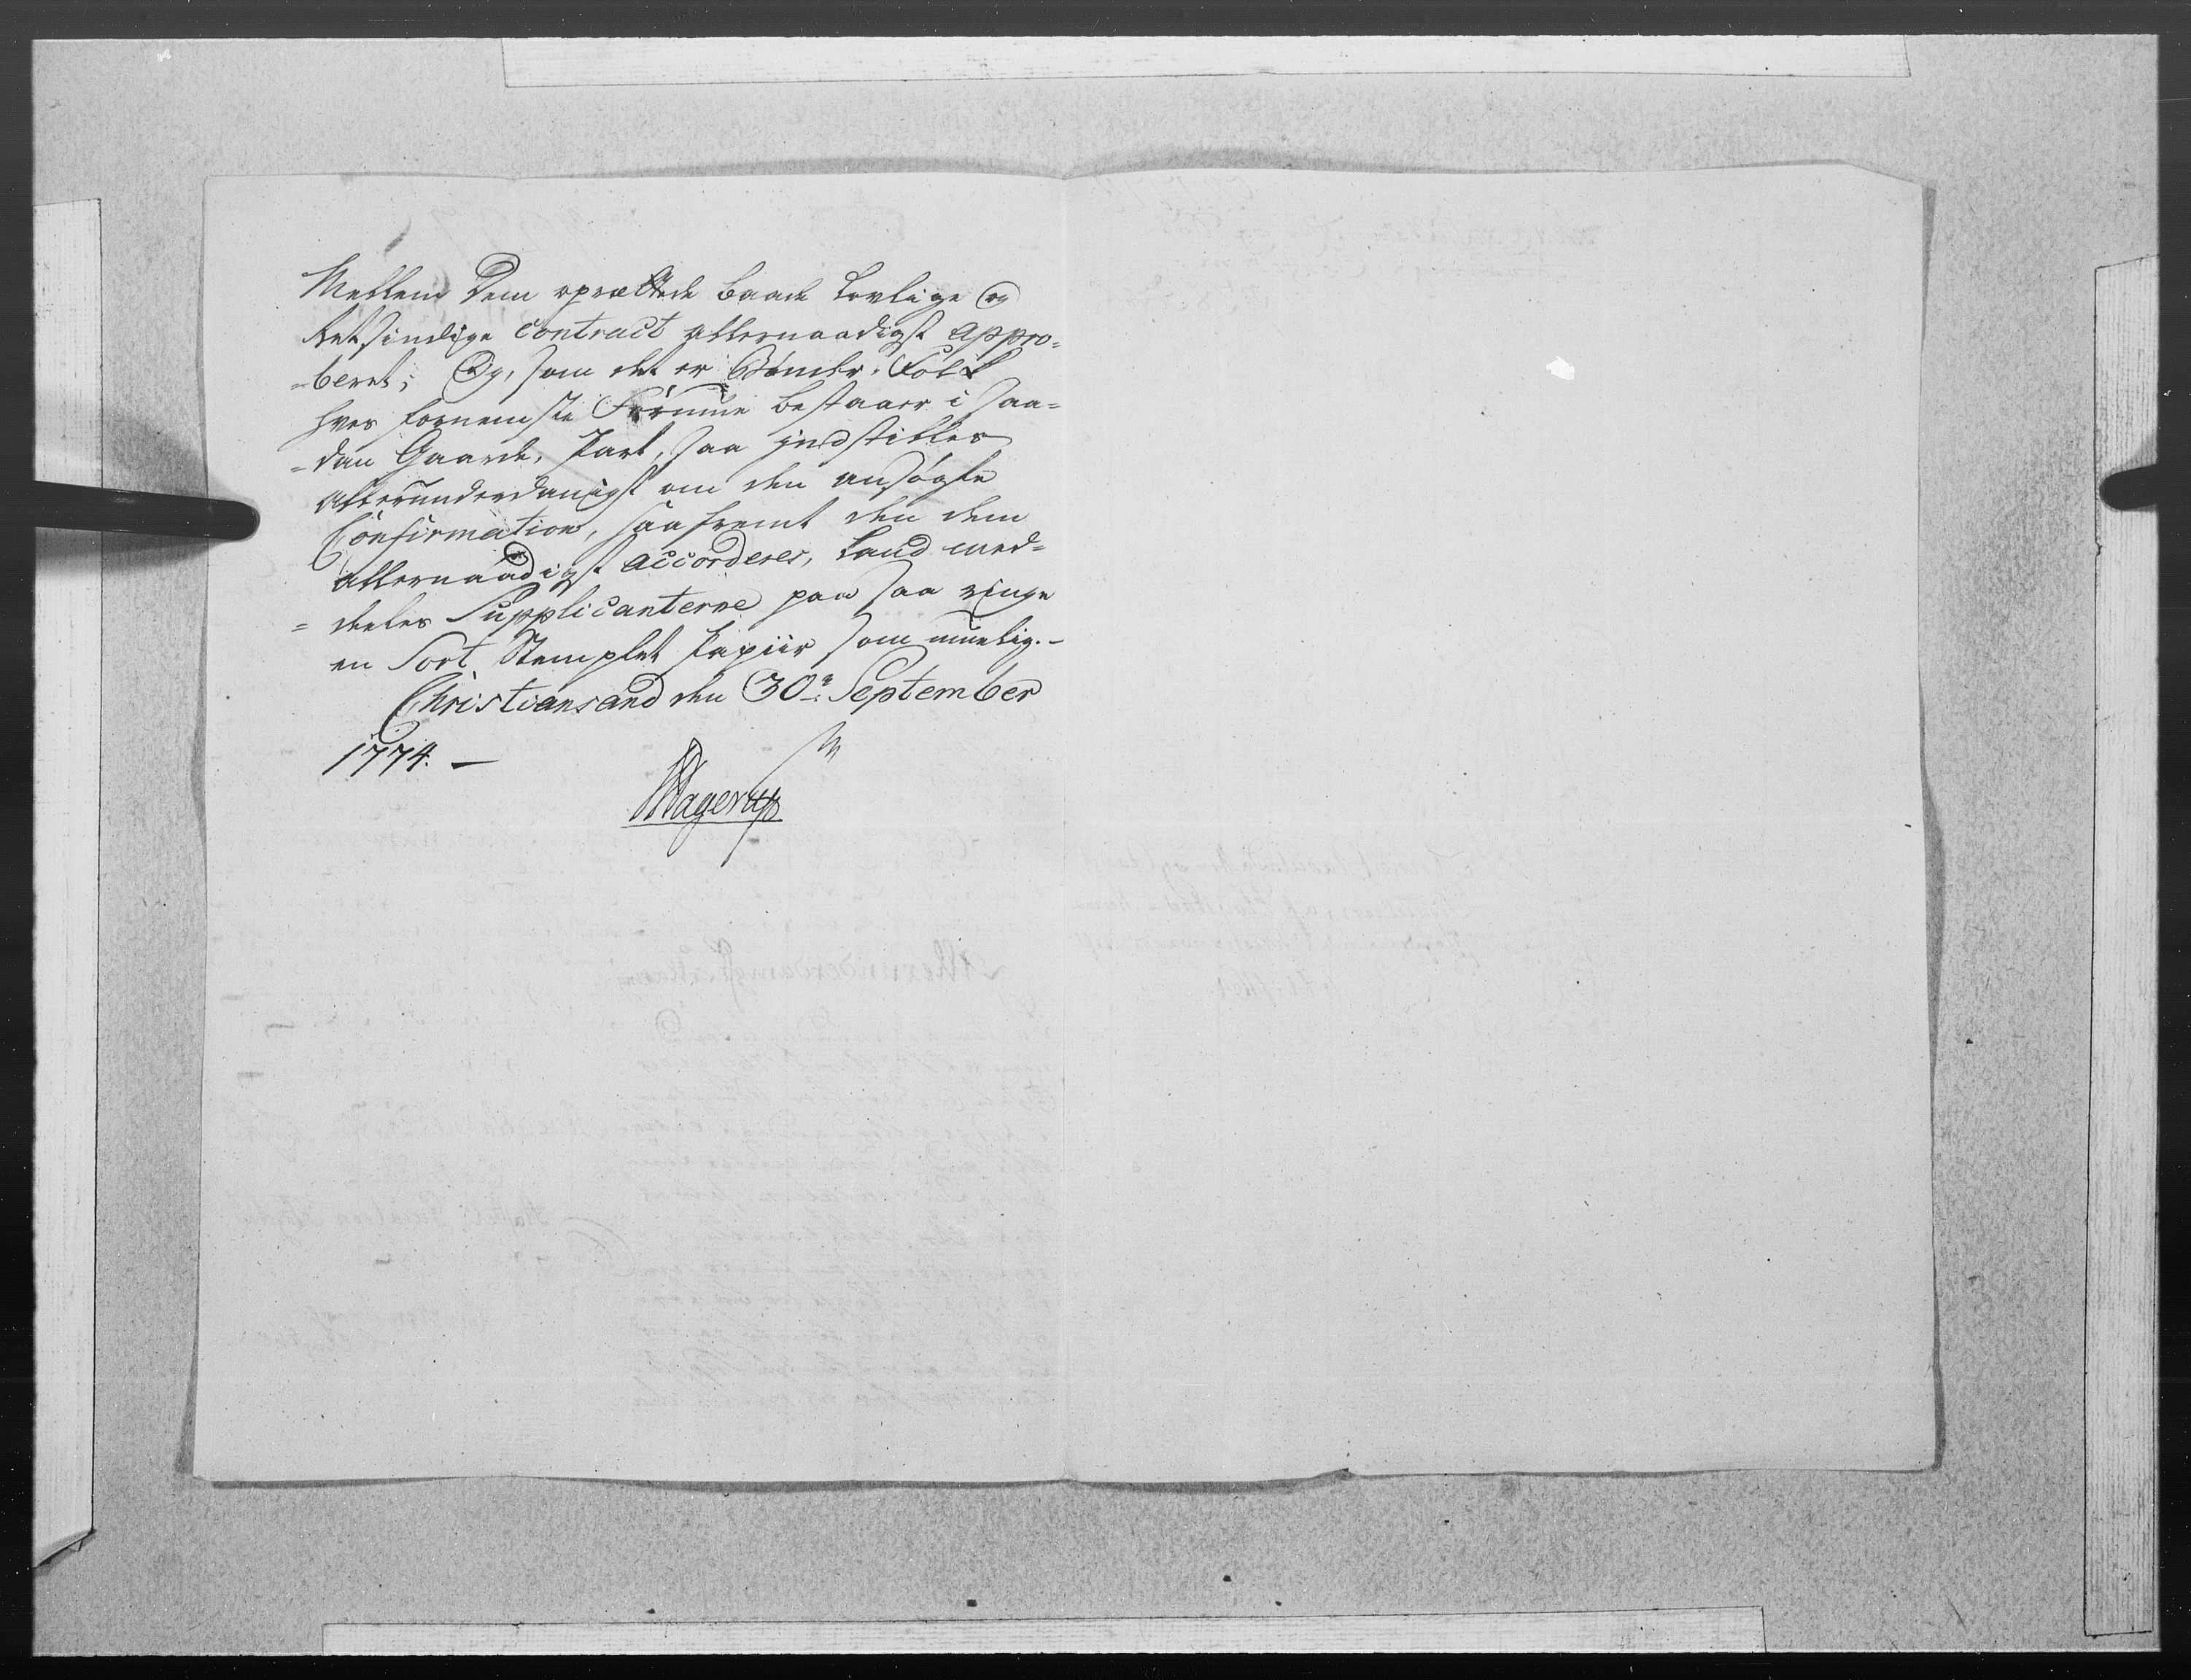 Mellem Dem oprættede baade lovlige og
Retsindige Contract allernaadigst appro-
-beret; Og, som det er Bönder-Folk
hvis fornemste Formue bestaaer i saa-
-dan Gaarde-Part, saa indstilles
allerunderdanigst om den ansøgte
Confirmation, saafremt den dem
allernaadigst accorderes, kand med-
=deeles Supplicanterne paa saa ringe
en Sort Stemplet Papiir som muelig.-
Christiansand den 30te September
1774. –
Hagerup